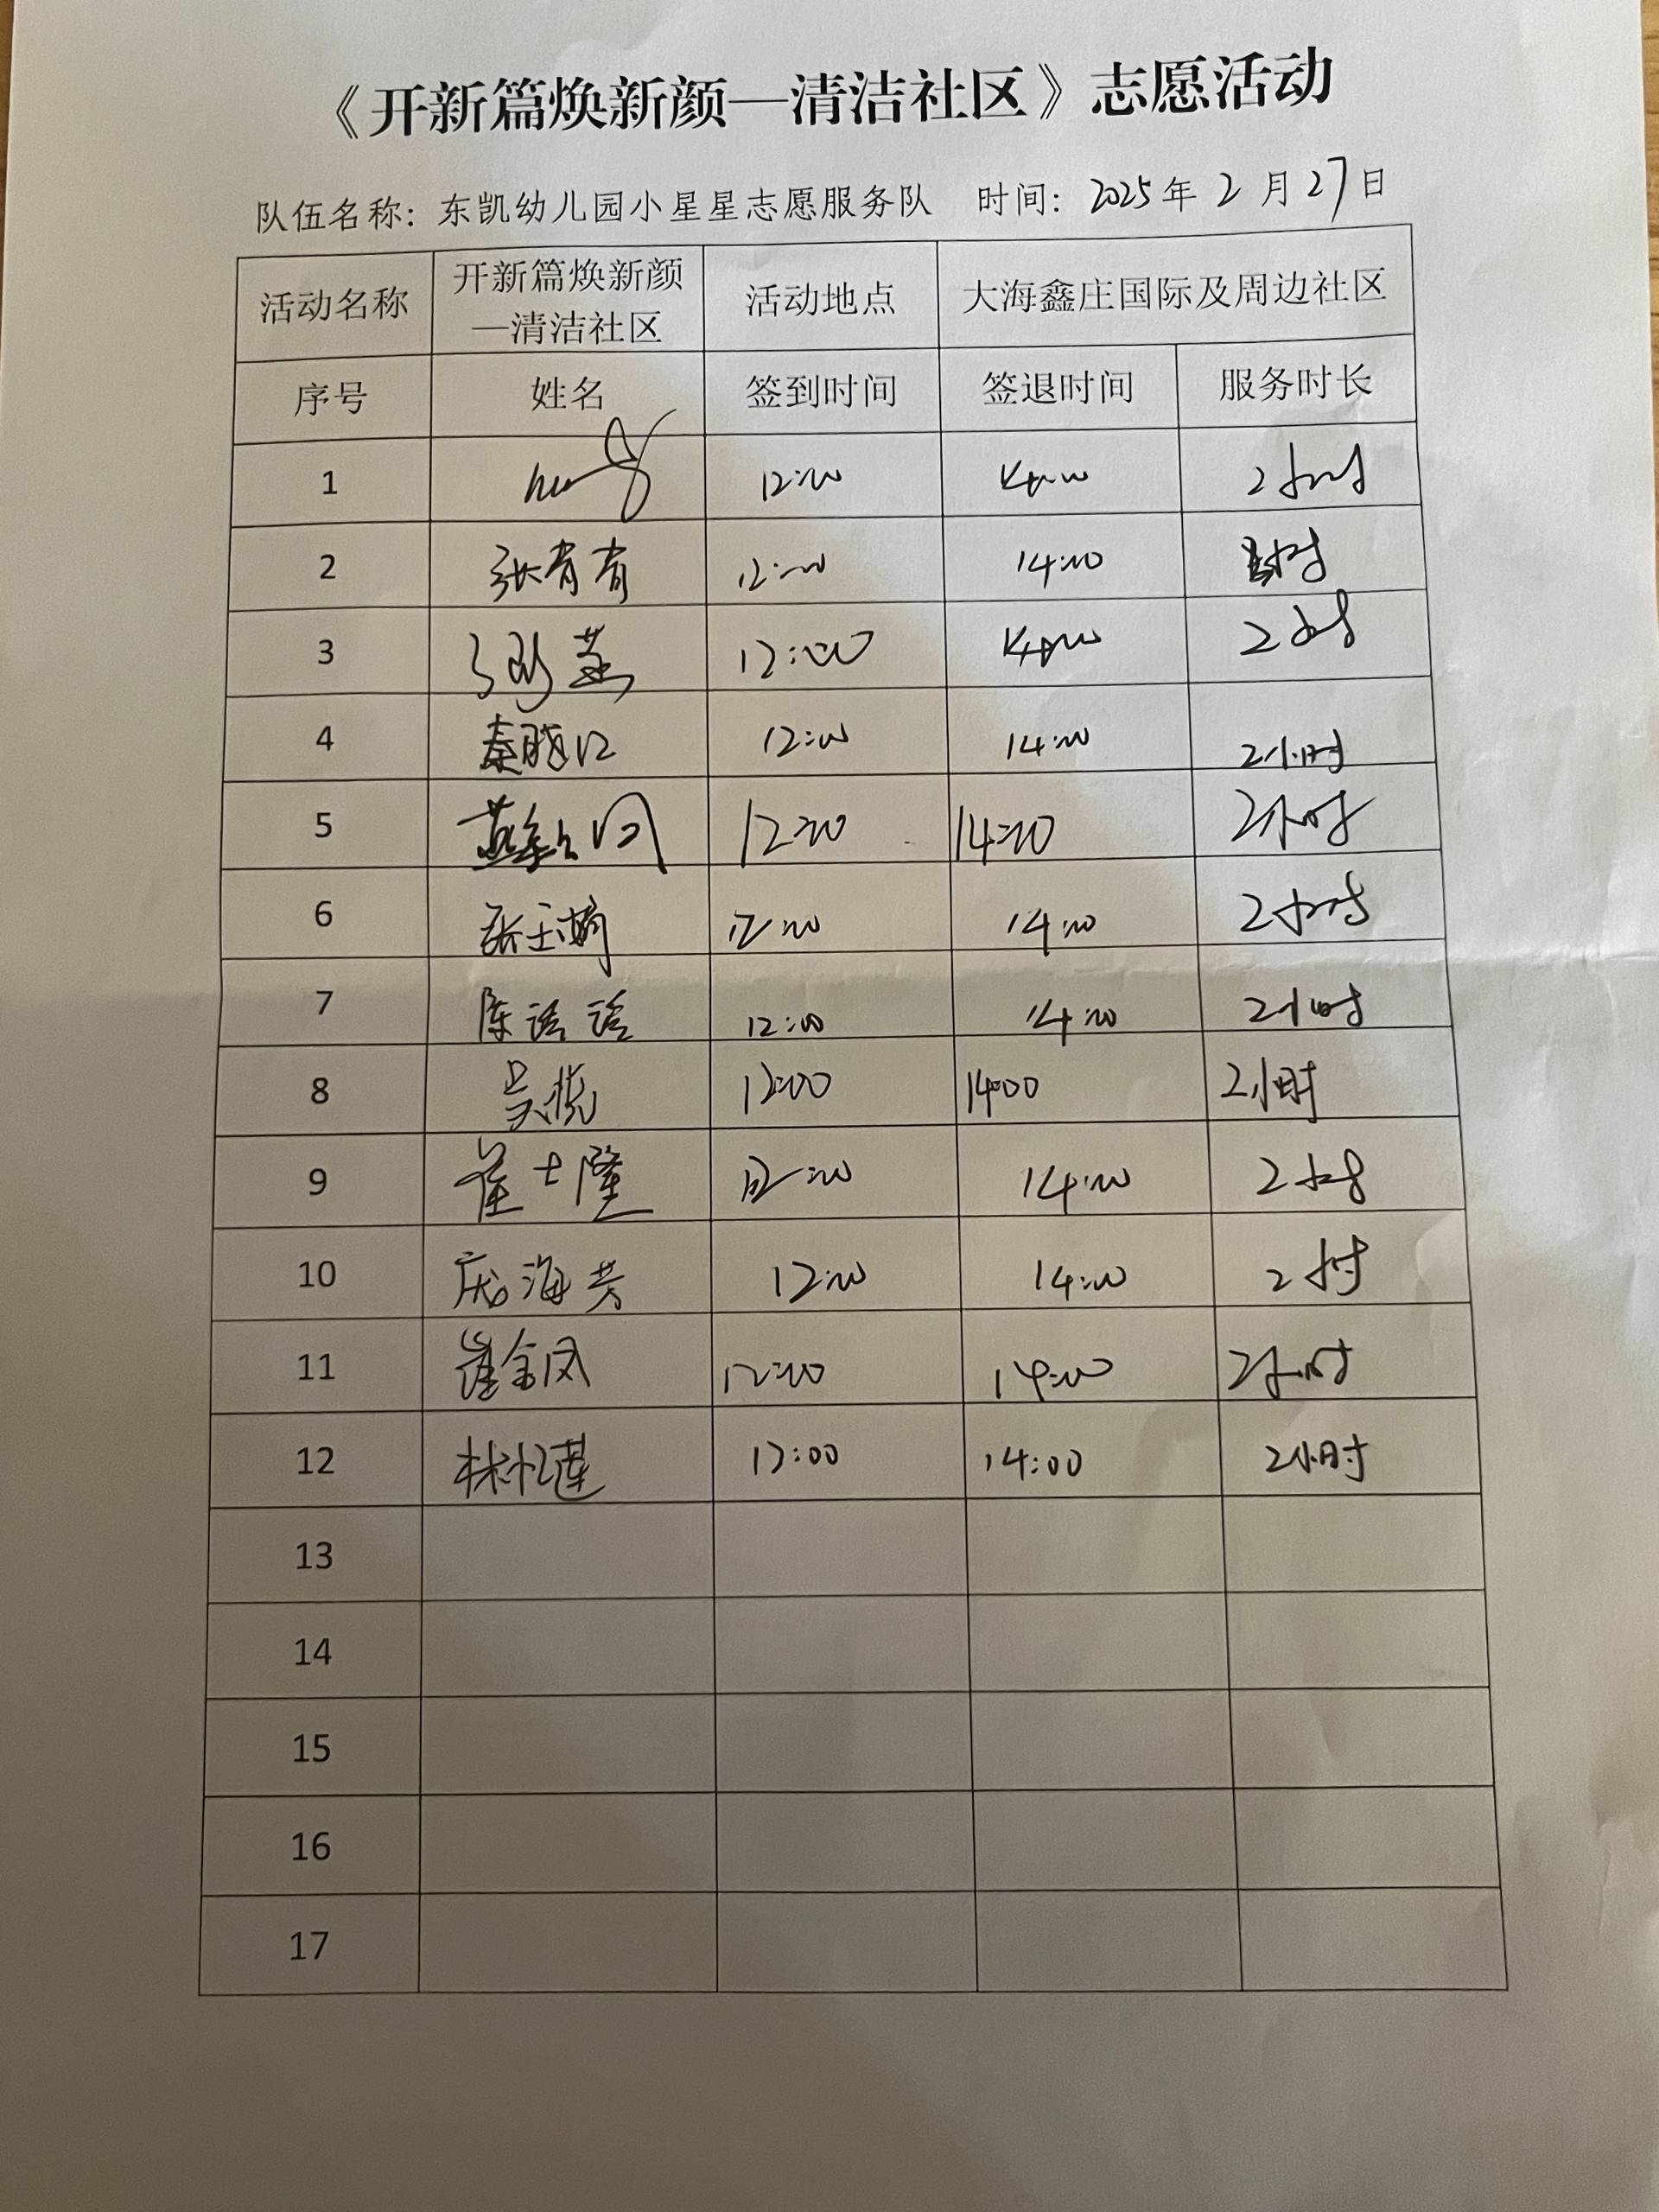 《开新篇焕新颜—清洁社区》志愿活动
队伍名称：东凯幼儿园小星星志愿服务队 时间：2025年2月27日
活动名称 开新篇焕新颜—清洁社区 活动地点 大海鑫庄国际及周边社区
序号 姓名 签到时间 签退时间 服务时长
1 12:00 14:00 2小时
2 张青青 12:00 14:00 小时
3 12:00 14:00 2小时
4 秦晓江 12:00 14:00 2小时
5 12:00 14:00 2小时
6 12:00 14:00 2小时
7 陈洁洁 12:00 14:00 2小时
8 吴悦 12:00 14:00 2小时
9 崔士隆 12:00 14:00 2小时
10 庞海芳 12:00 14:00 2小时
11 崔金凤 12:00 14:00 2小时
12 林忆莲 12:00 14:00 2小时
13
14
15
16
17